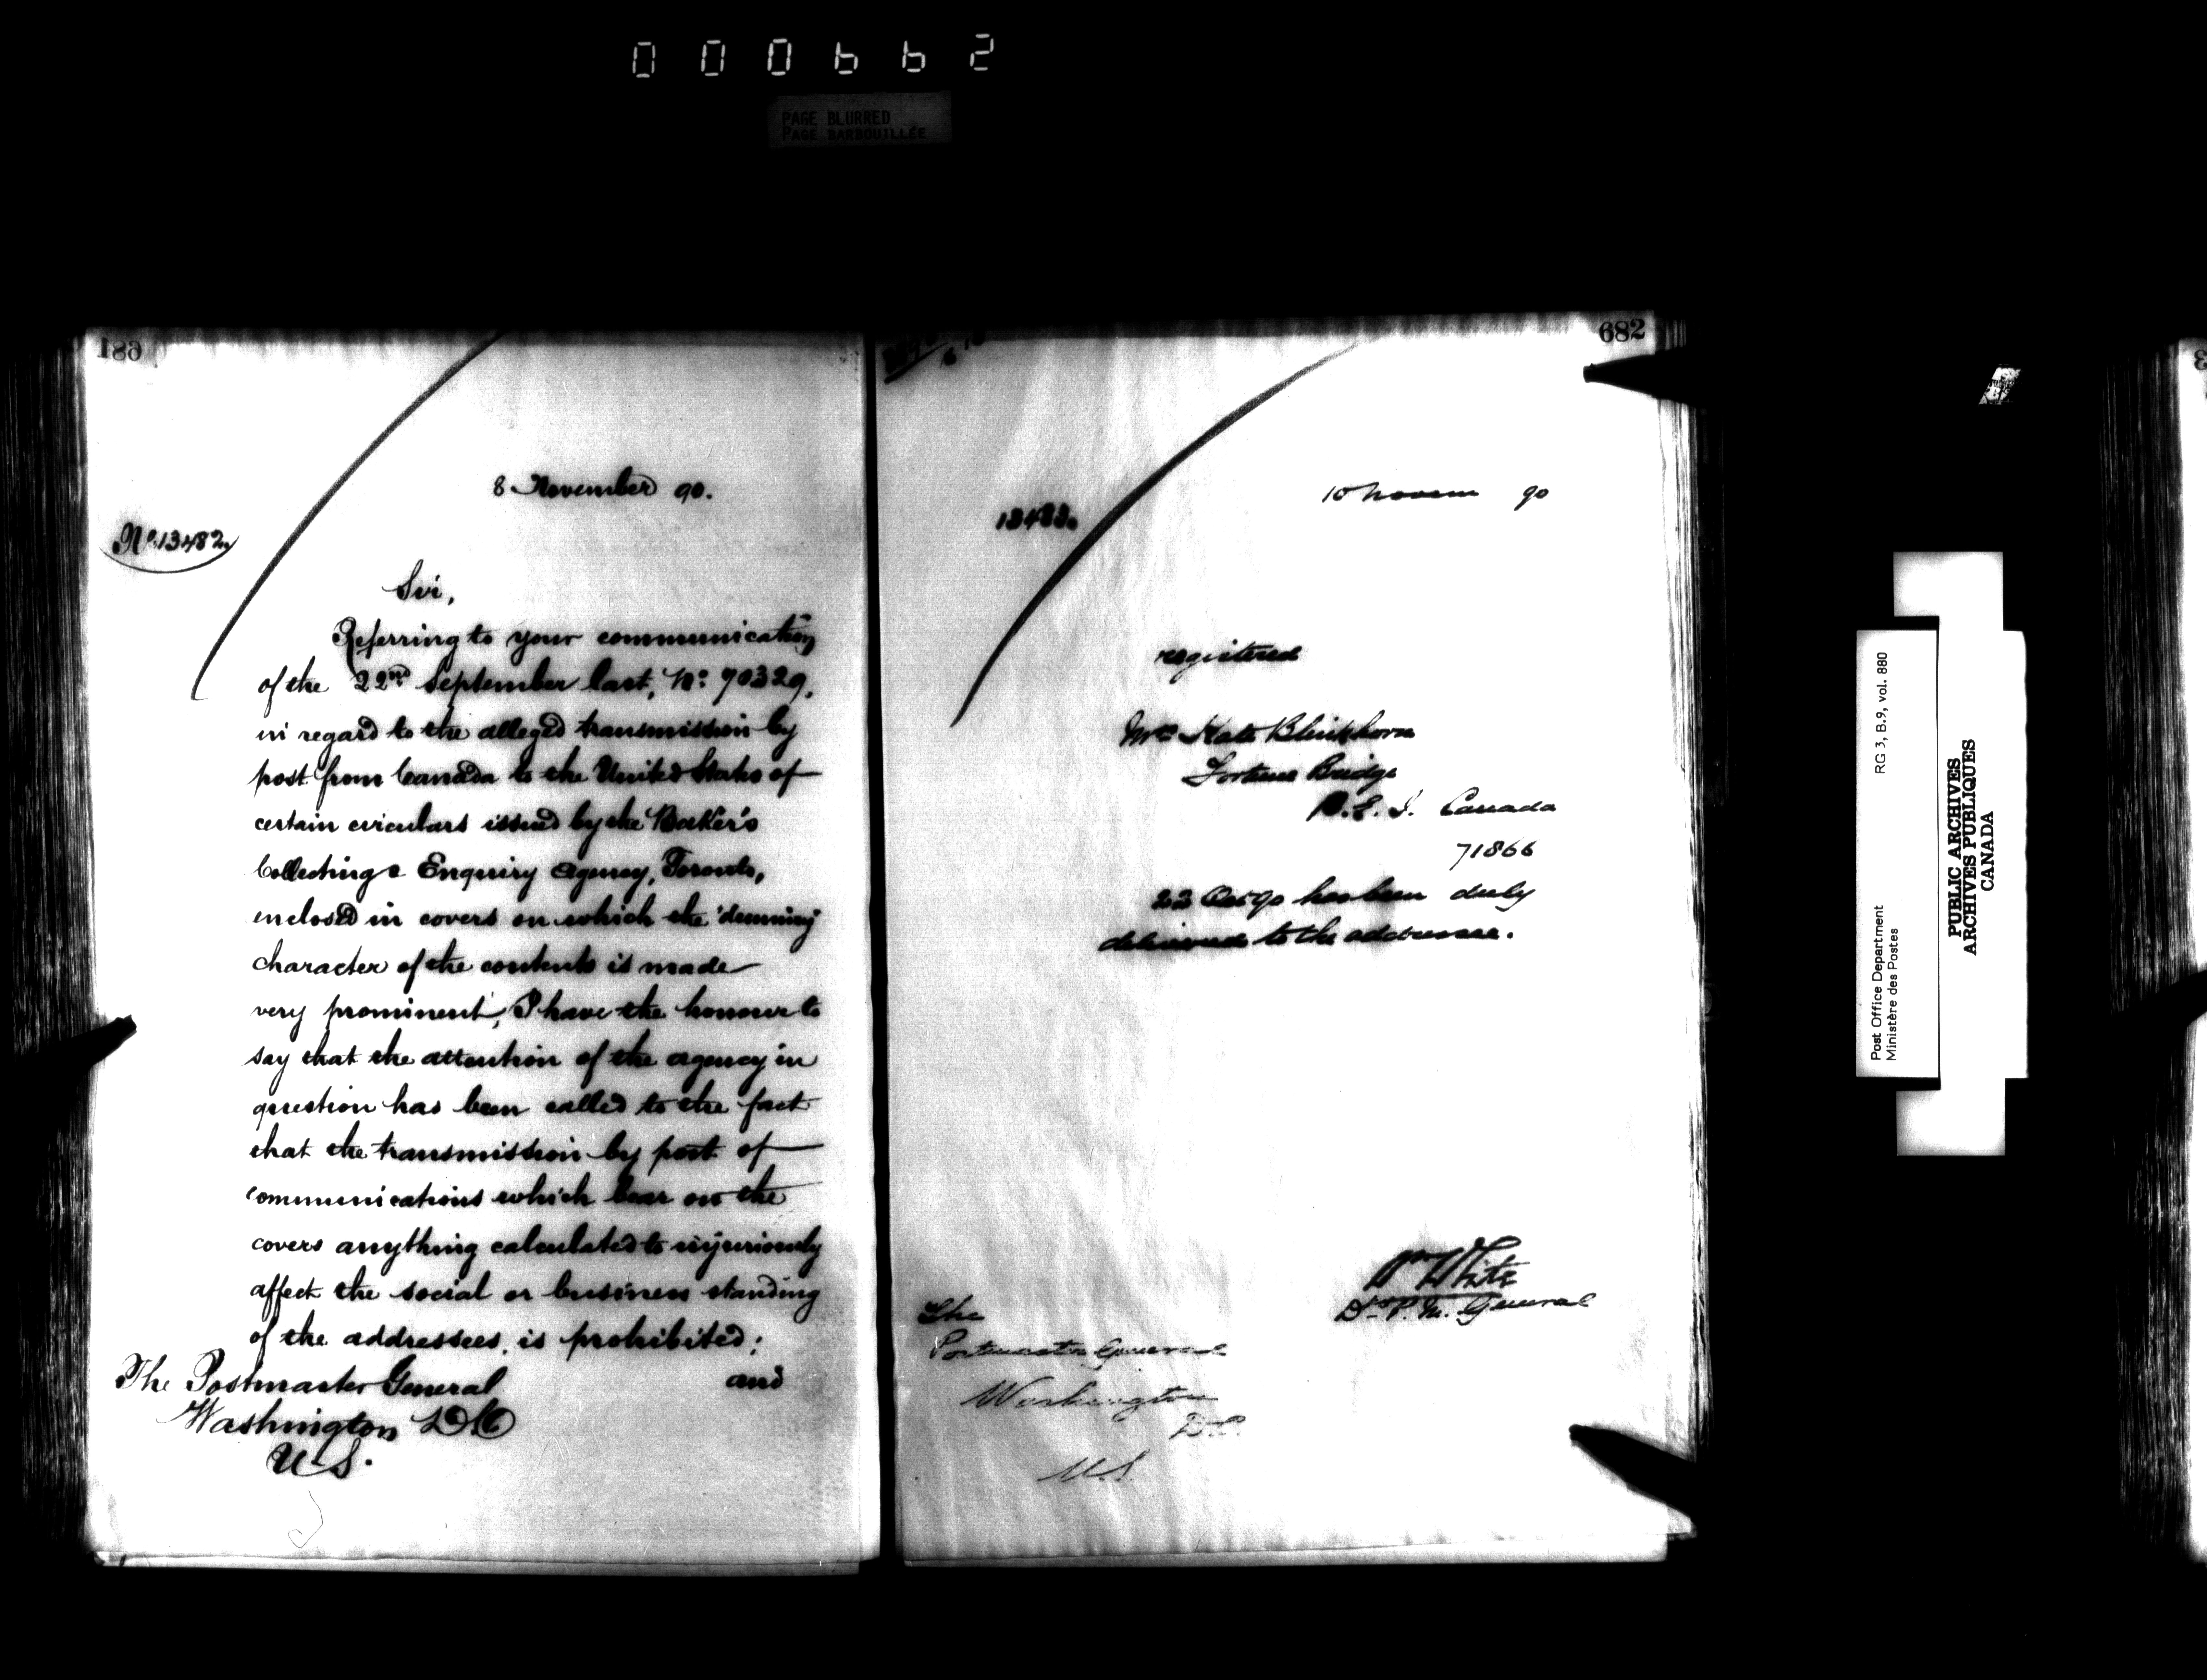 000662
PAGE BLURRED
PAGE BARBOUILLÉE
681
8 November 90.
No. 13482.
Sir,
Referring to your communication
of the 22nd September last, No. 70329,
in regard to the alleged transmission by
post from Canada to the United States of
certain circulars issued by the Baker's
Collecting & Enquiry Agency, Toronto,
enclosed in covers on which the 'dunning'
character of the contents is made
very prominent, I have the honour to
say that the attention of the agency in
question has been called to the fact
that the transmission by post of
communications which bear on the
covers anything calculated to injuriously
affect the social or business standing
of the addressees, is prohibited;
and
The Postmaster General
Washington D.C
U.S.
682
10 Novem 90
13483.
registered
Mrs Kate Blinkhorn
Fortune Bridge
P.E.I. Canada
71866
22 Oct 90 has been duly
delivered to the addressee.
Wm White
D. P. M. General
The
Postmaster General
Washington
D.C.
U.S.
Post Office Department
Ministère des Postes
RG 3, B.9, vol. 880
PUBLIC ARCHIVES
ARCHIVES PUBLIQUES
CANADA